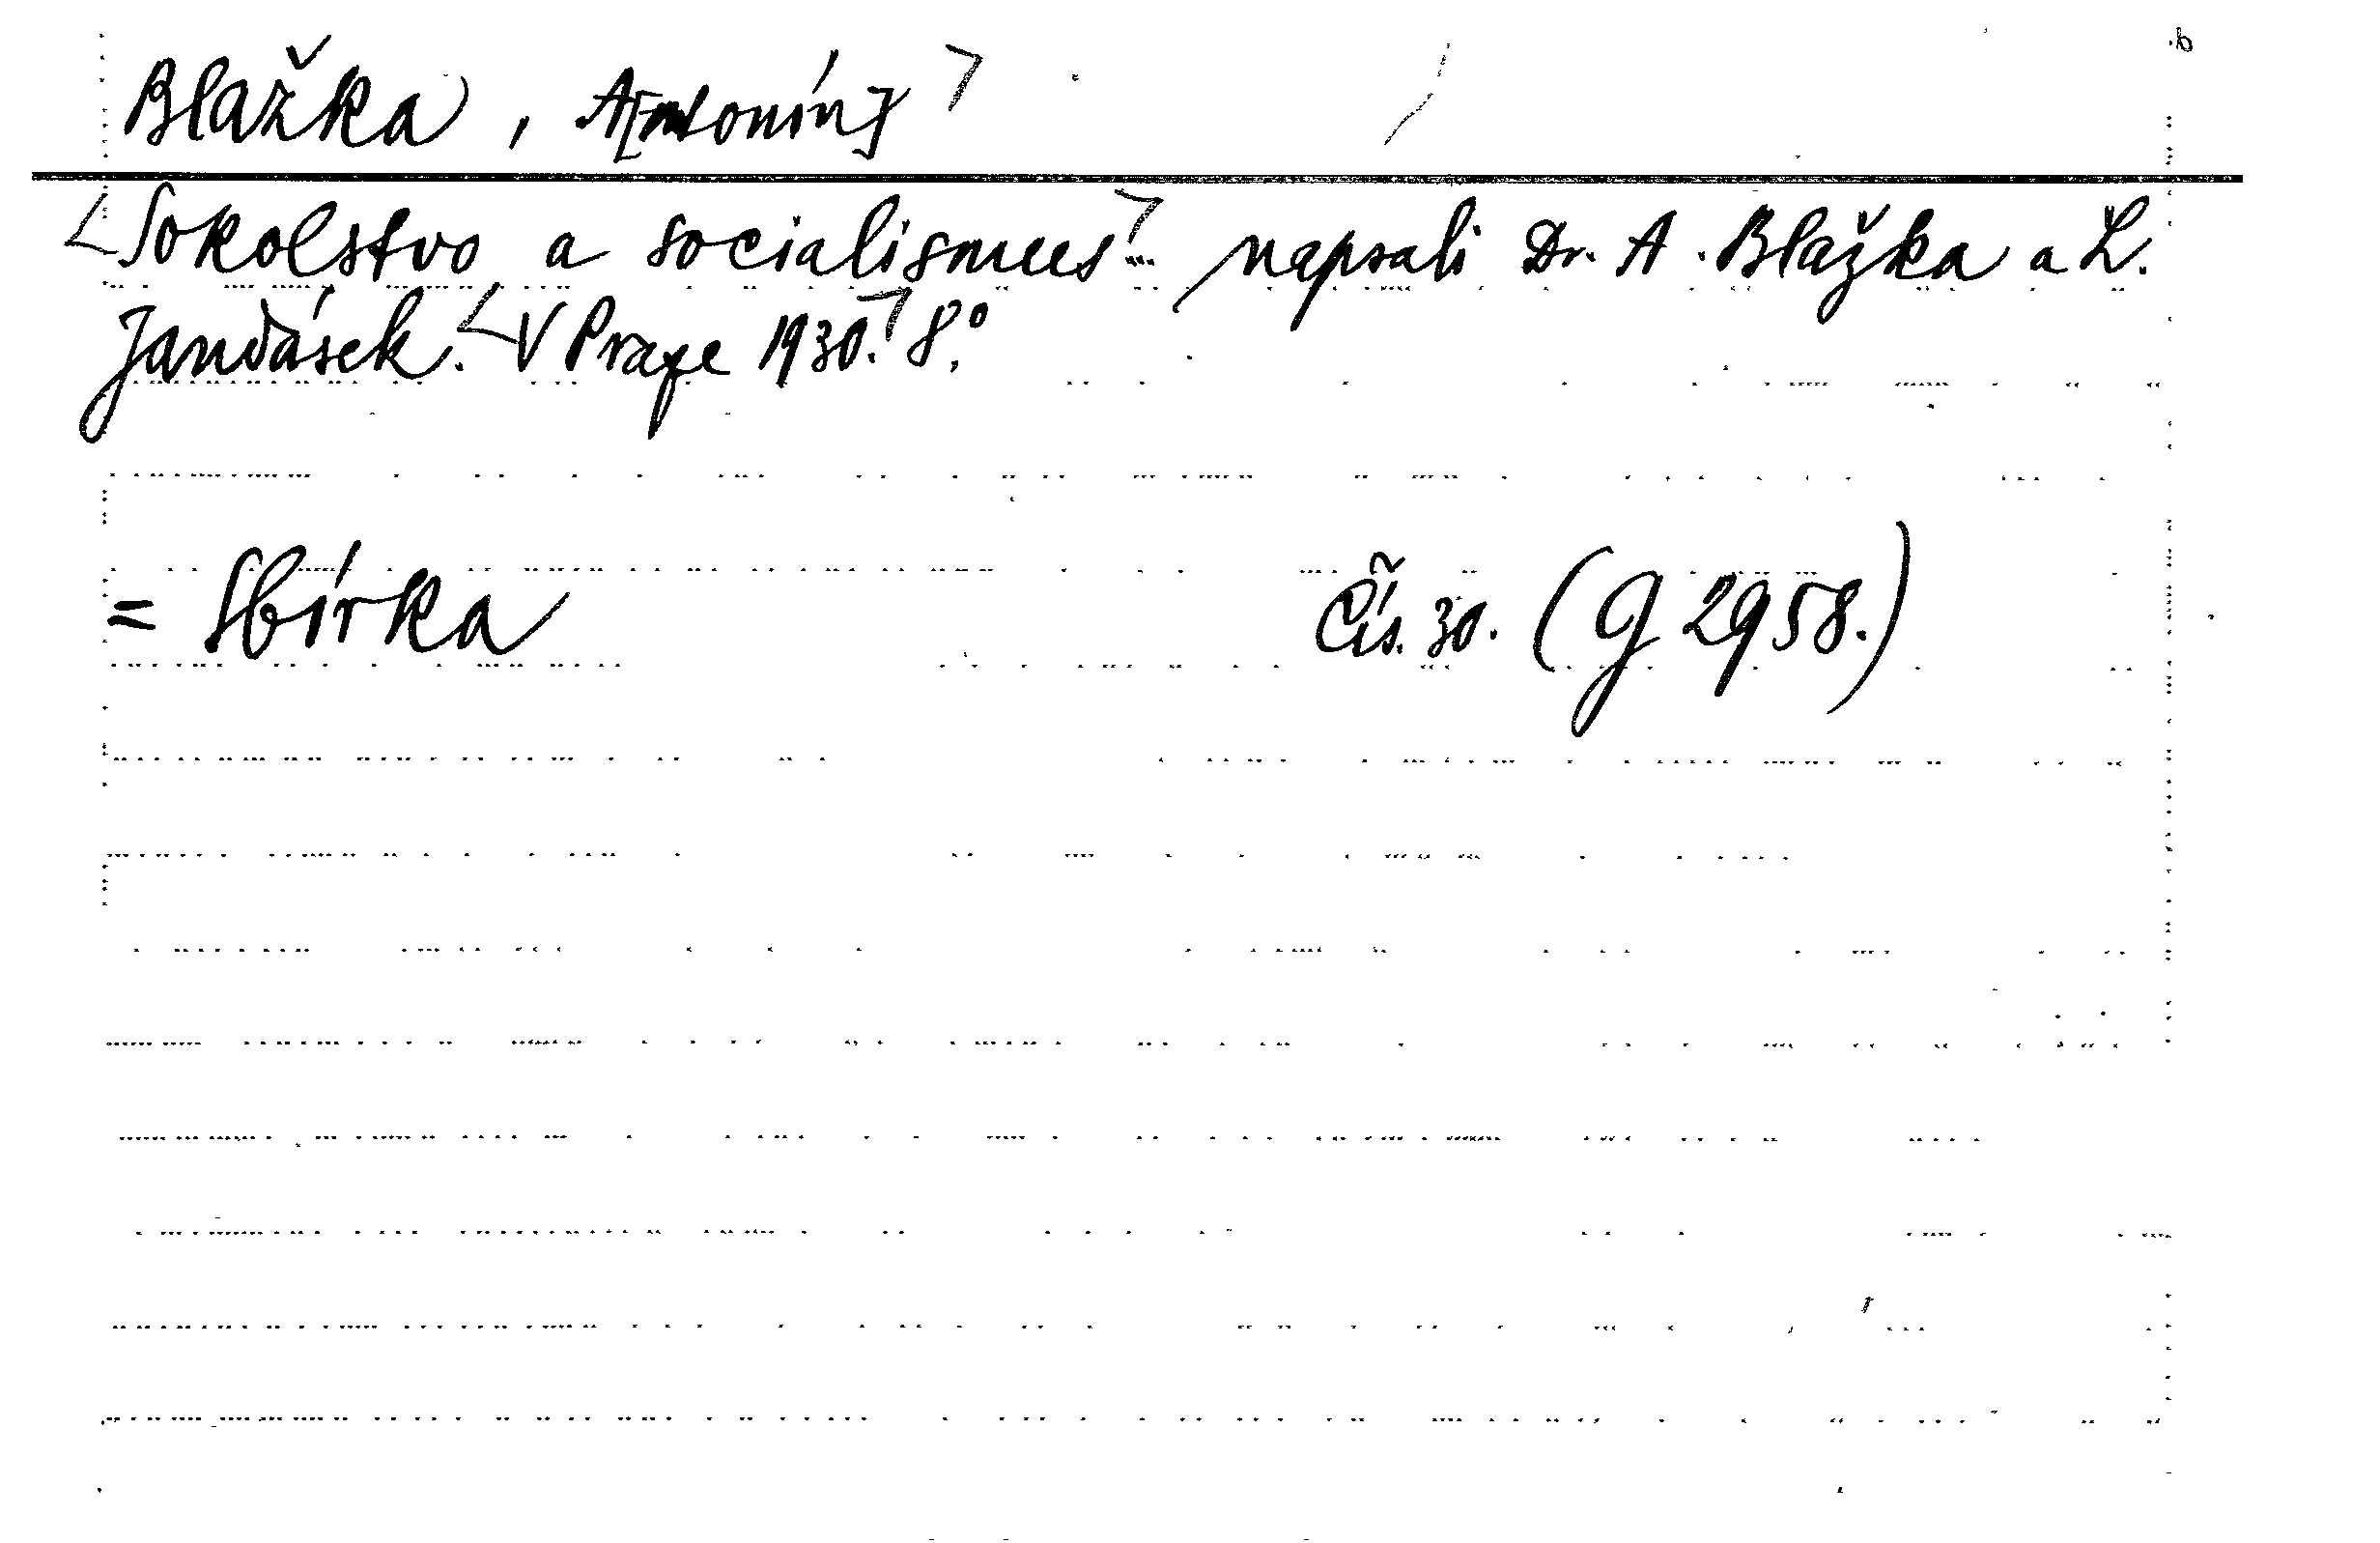 Blažka, A[ntonín]
Sokolstvo a socialismus... napsali Dr. A. Blažka a L.
Jandásek. V Praze 1930. 8°.
= Sbírka Čís. 30. (G 2958.)